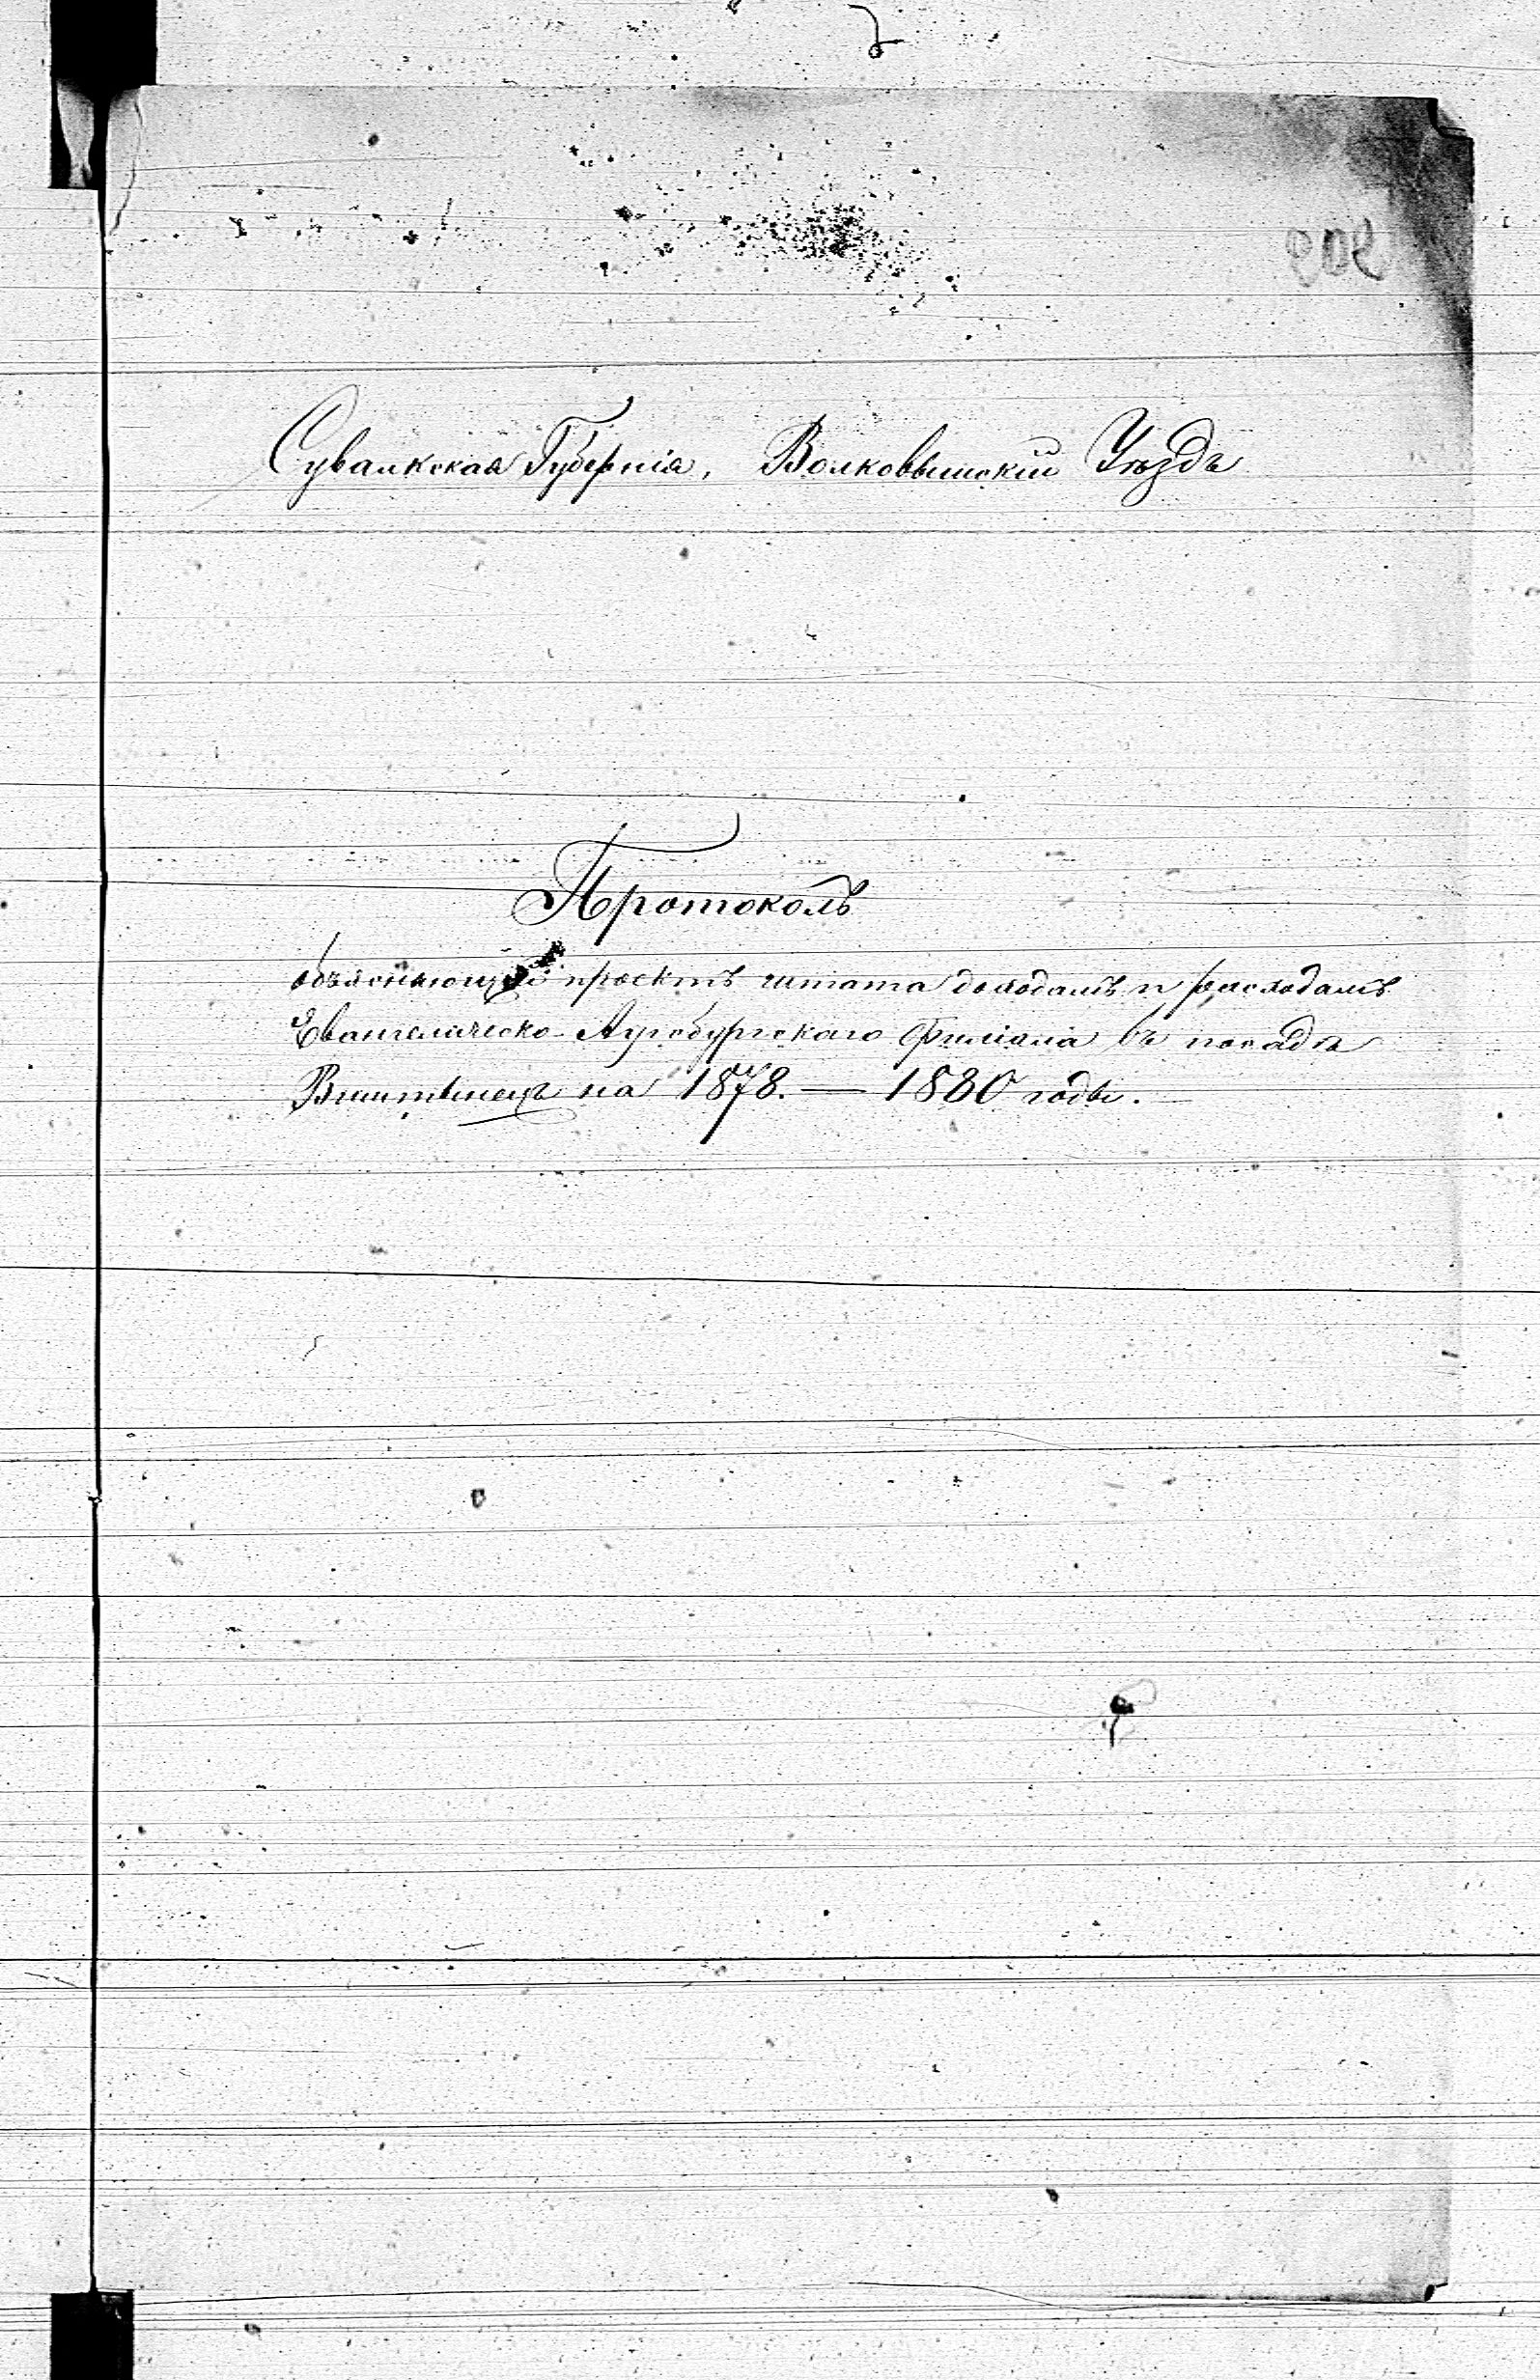 Сувалкская Губернія, Волковышскій Уѣздъ
Протоколъ
объясняющій проектъ штата доходамъ и расходамъ
Евангелическо-Аугсбургскаго Филіала въ посадѣ
Виштынецъ на 1878. — 1880 годы.